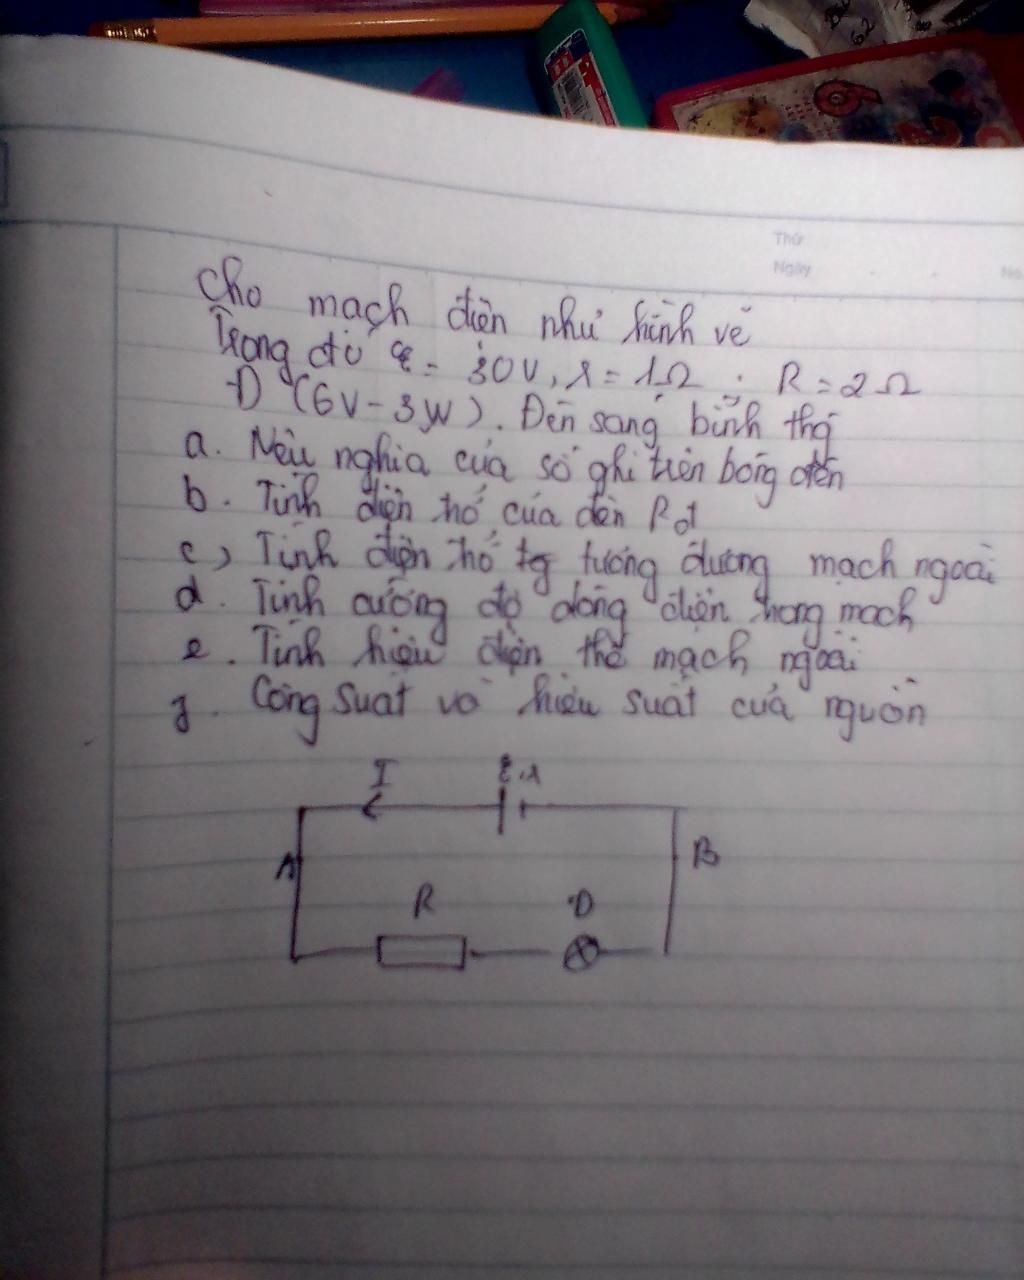 Thứ
Ngày
No
Cho mạch điện như hình vẽ
Trong đó ε = 30V, r = 1Ω . R = 2Ω
Đ (6V - 3W). Đèn sáng bình thg
a. Nêu nghĩa của số ghi trên bóng đèn
b. Tính điện trở của đèn Rđ
c) Tính điện trở tg tương đương mạch ngoài
d. Tính cường độ dòng điện trong mạch
e. Tính hiệu điện thế mạch ngoài
g. Công suất và hiệu suất của nguồn
I ε,r
A B
R Đ